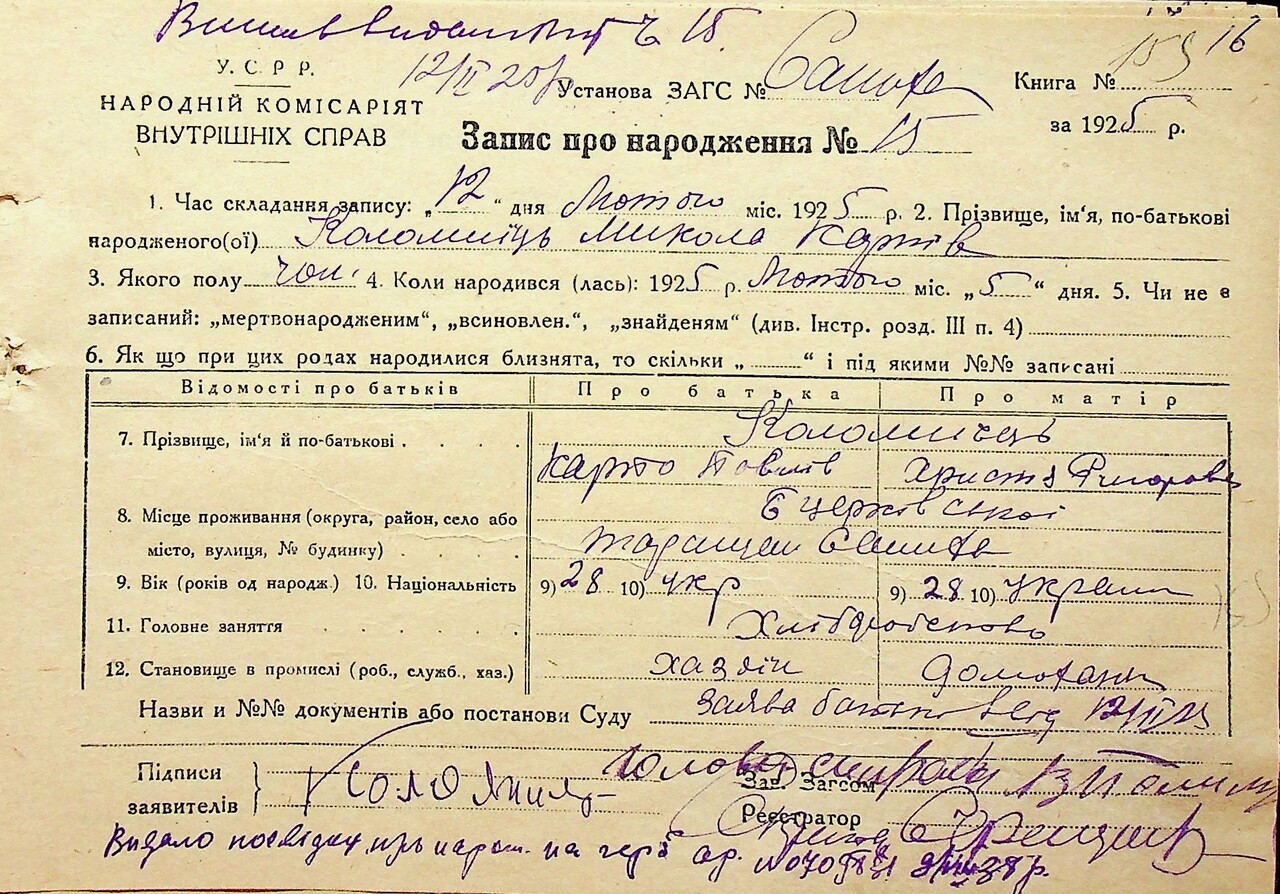 Ч 15.
У.С.Р.Р.
12/II 25р
Установа ЗАГС №
Книга № 155
16
НАРОДНІЙ КОМІСАРІЯТ
ВНУТРІШНІХ СПРАВ
за 1925 р.
Запис про народження № 15
1. Час складання запису: „12“ дня Лютого міс. 1925 р. 2. Прізвище, ім‘я, по-батькові
народженого(ої) Коломиїць Микола Карпів
3. Якого полу чол. 4. Коли народився (лась): 1925 р. Лютого міс. „5“ дня. 5. Чи не є
записаний: „мертвонародженим“, „всиновлен.“, „знайденям“ (див. Інстр. розд. III п. 4)
6. Як що при цих родах народилися близнята, то скільки „ “ і під якими №№ записані
Відомості про батьків Про батька Про матір
7. Прізвище, ім'я й по-батькові . . . . Коломиєць
Карпо Павлів Христя Григорова
8. Місце проживання (округа, район, село або Б церківської
місто, вулиця, № будинку) . . . .
9. Вік (років од народж.) 10. Національність 9) 28 10) укр 9) 28 10) україн
11. Головне заняття . . . . . Хліборобство
12. Становище в промислі (роб., служб., хаз.) хазяїн домохаз
Назви и №№ документів або постанови Суду заява батька 12/II 25
Підписи
заявителів
Голова сільради
Зав. Загсом
Реєстратор
Видано посвідку про народж. на